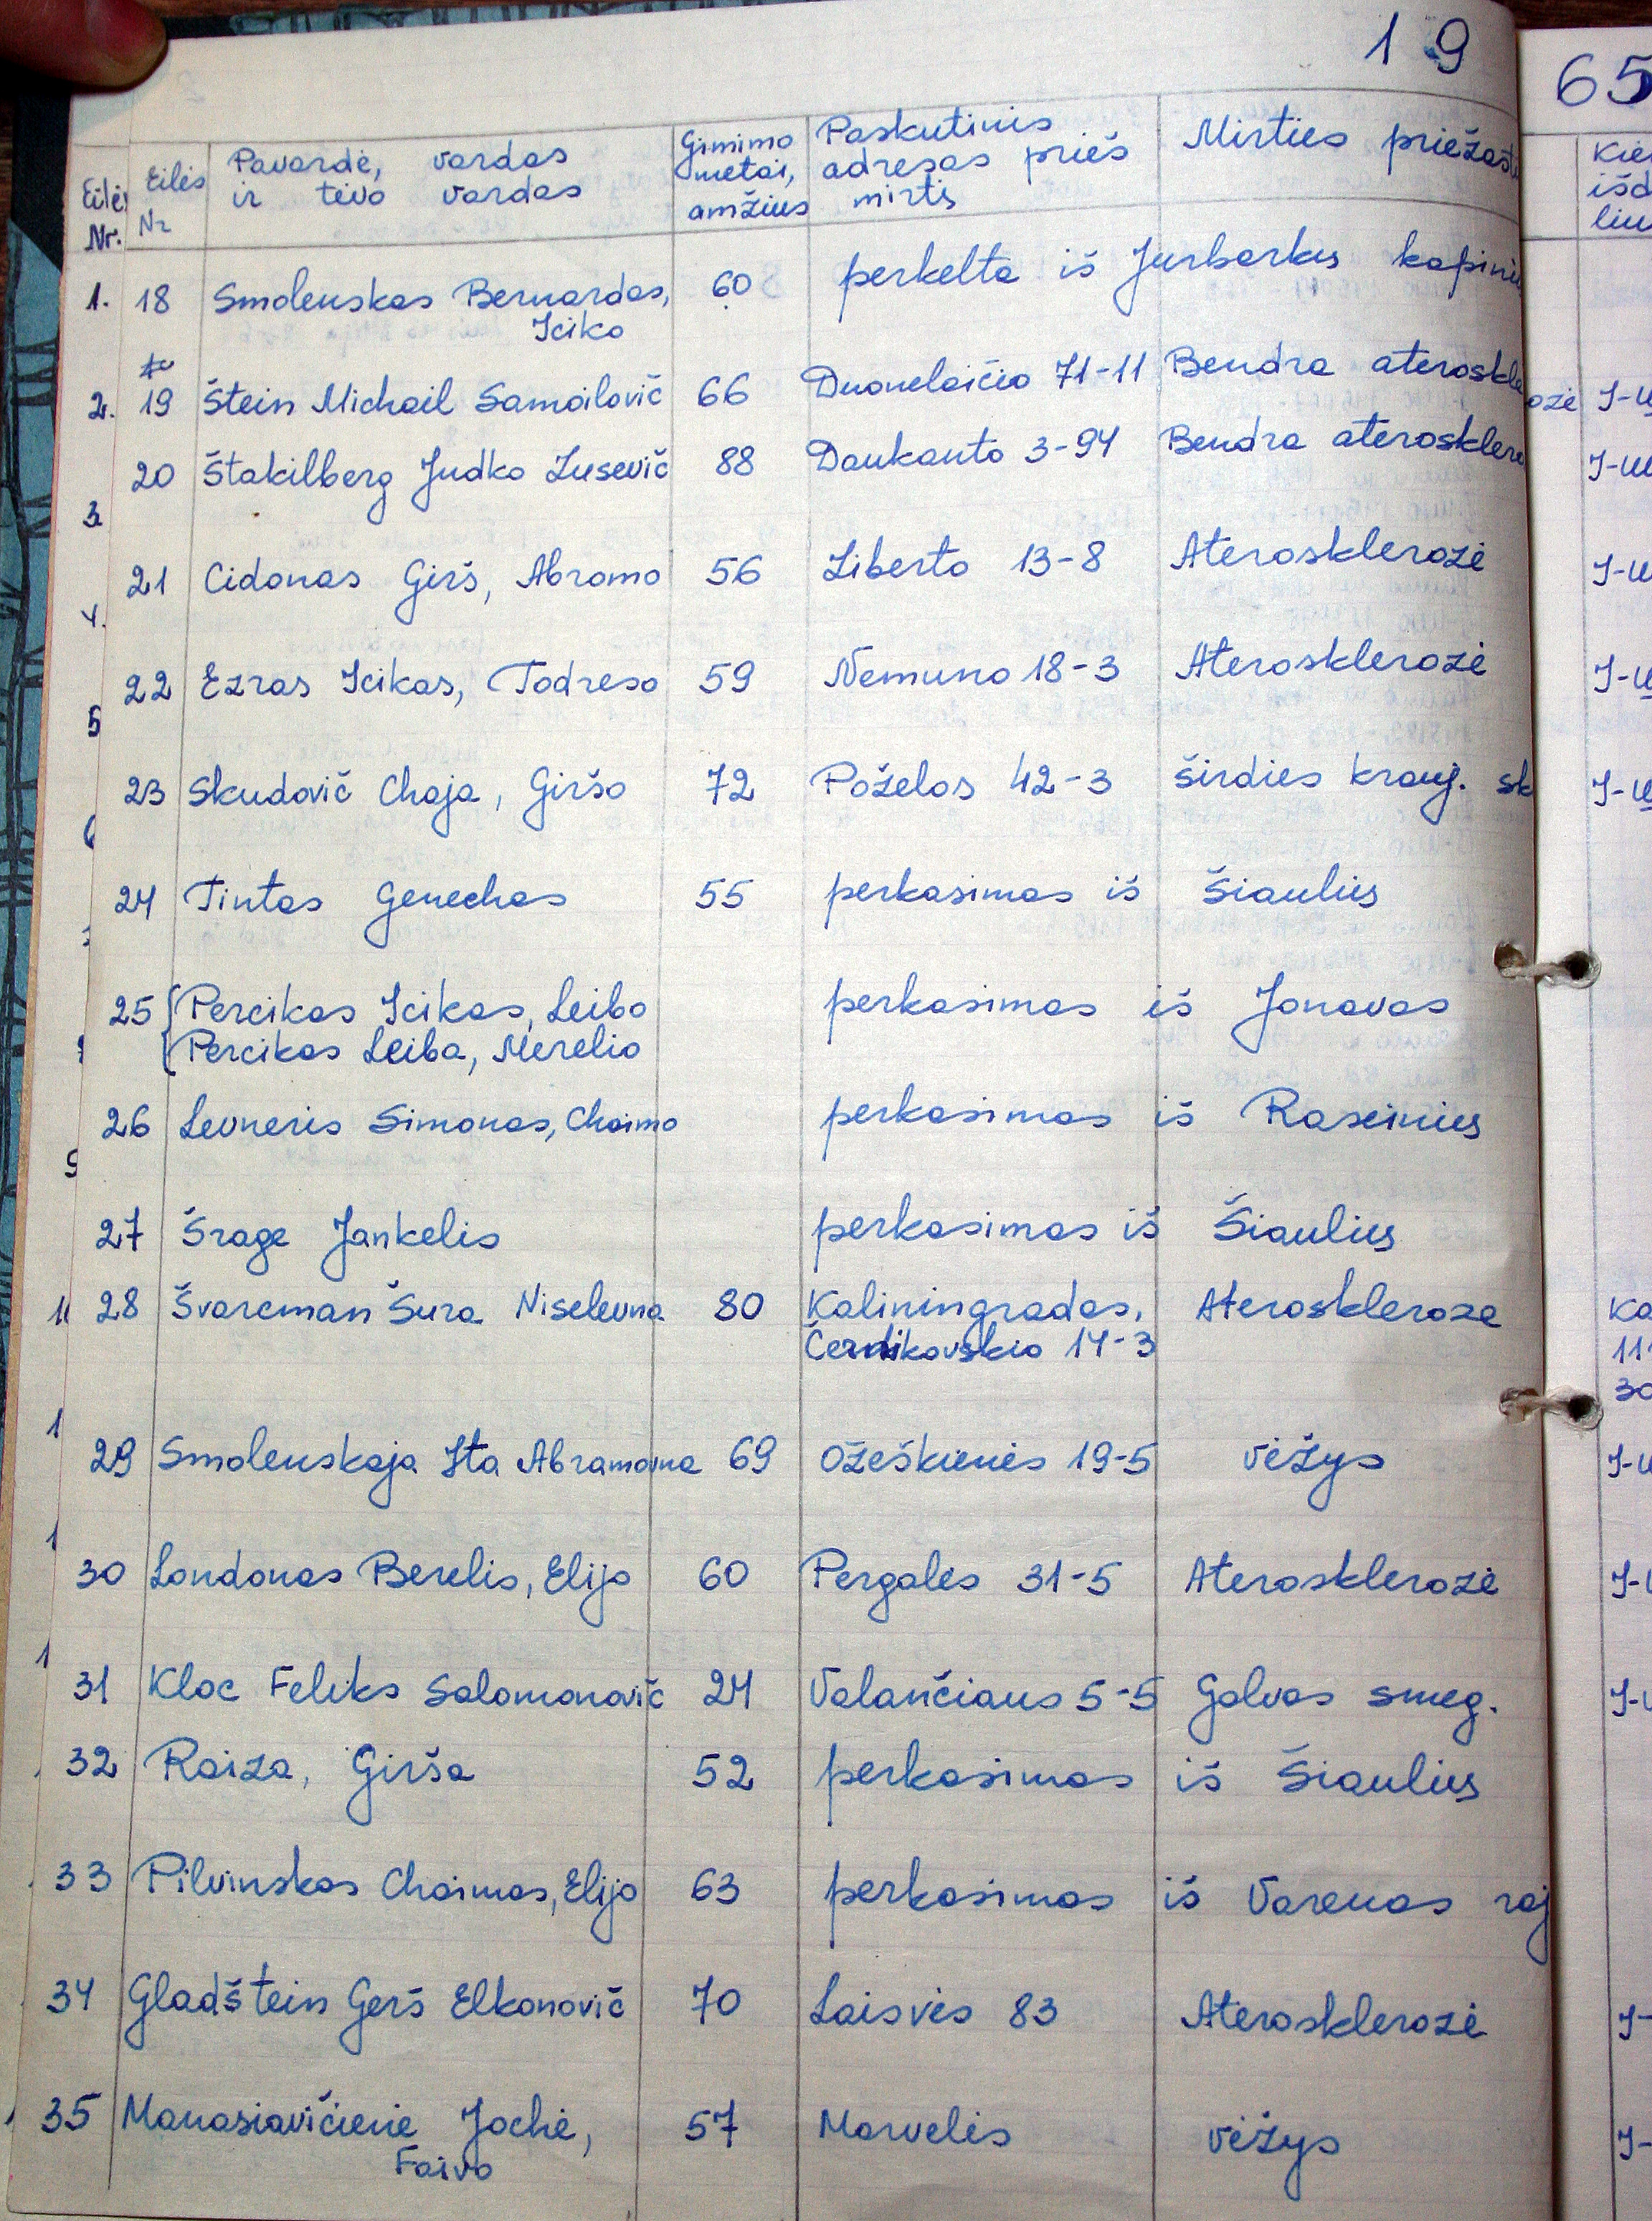 19
65
Eilės Nr.
Eilės Nr
Pavardė, vardas ir tėvo vardas
Gimimo metai, amžius
Paskutinis adresas prieš mirtį
Mirties priežast
1. 18 Smolenskas Bernardas, 60 perkelta iš Jurbarkus kapinių
Iciko
2. 19 Štein Michail Samoilovič 66 Duonelaičio 71-11 Bendra aterosklerozė I-
20 Štakilberg Judko Zusevič 88 Daukanto 3-94 Bendra aterosklero I-
3.
21 Cidonas Girš, Abramo 56 Liberto 13-8 Aterosklerozė I-
4.
22 Ezras Icikas, Todreso 59 Nemuno 18-3 Aterosklerozė I-
5
23 Skudovič Chaja, Giršo 72 Poželos 42-3 širdies krauj. sk I-
24 Tintas Genechas 55 perkasimas iš Šiaulius
25 Percikas Icikas, Leibo perkasimas iš Jonavas
Percikas Leiba, Merelio
26 Levneris Simonas, Chaimo perkasimas iš Raseinius
27 Šrage Jankelis perkasimas iš Šiaulius
28 Švarcman Šura Niselevna 80 Kaliningradas, Ateroskleroza
14-3
29 Smolenskaja Ita Abramovna 69 Ožeškienės 19-5 vėžys
30 Londonas Berelis, Elijo 60 Pergalės 31-5 Aterosklerozė
31 Kloc Feliks Salomonovič 24 Valančiaus 5-5 Galvos smeg.
32 Raiza, Girša 52 perkasimas iš Šiaulius
33 Pilvinskas Chaimas, Elijo 63 perkasimas iš Varenas raj
34 Gladštein Gerš Elkonovič 70 Laisvės 83 Aterosklerozė
35 Manasiavičienė Jochė, 57 Marvelės vėžys
Faivo